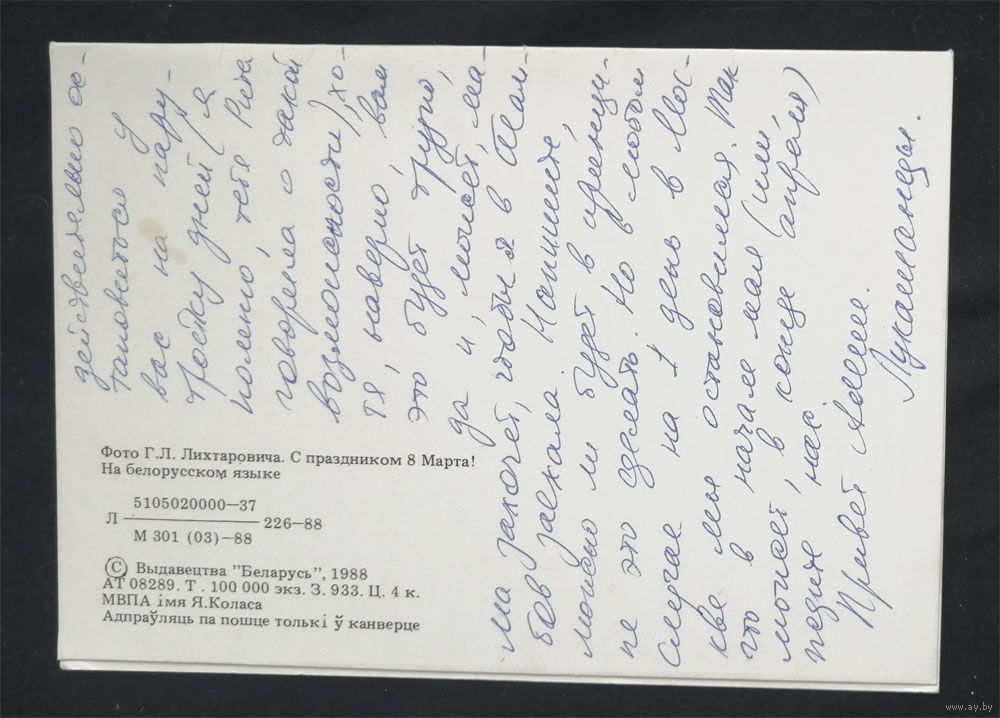 действительно ос-
тановиться у
вас на пару-
тройку дней (я
помню, тётя Рита
говорила о такой
возможности), хо-
тя, наверно, вам
это будет трудно,
да и, может, ма-
ма захочет, чтобы я в Там-
бов заехала. Напишите,
можно ли будет в принци-
пе это сделать. Но в любом
случае на 1 день в Мос-
кве мы остановимся. Так
что в начале мая (или,
может, в конце апреля)
ждите нас.
Привет Алёше.
Лукашанцы.
Фото Г.Л. Лихтаровича. С праздником 8 Марта!
На белорусском языке
5105020000—37
Л 226—88
М 301 (03)—88
© Выдавецтва "Беларусь", 1988
АТ 08289. Т. 100 000 экз. З. 933. Ц. 4 к.
МВПА імя Я.Коласа
Адпраўляць па пошце толькі ў канверце
www.ay.by